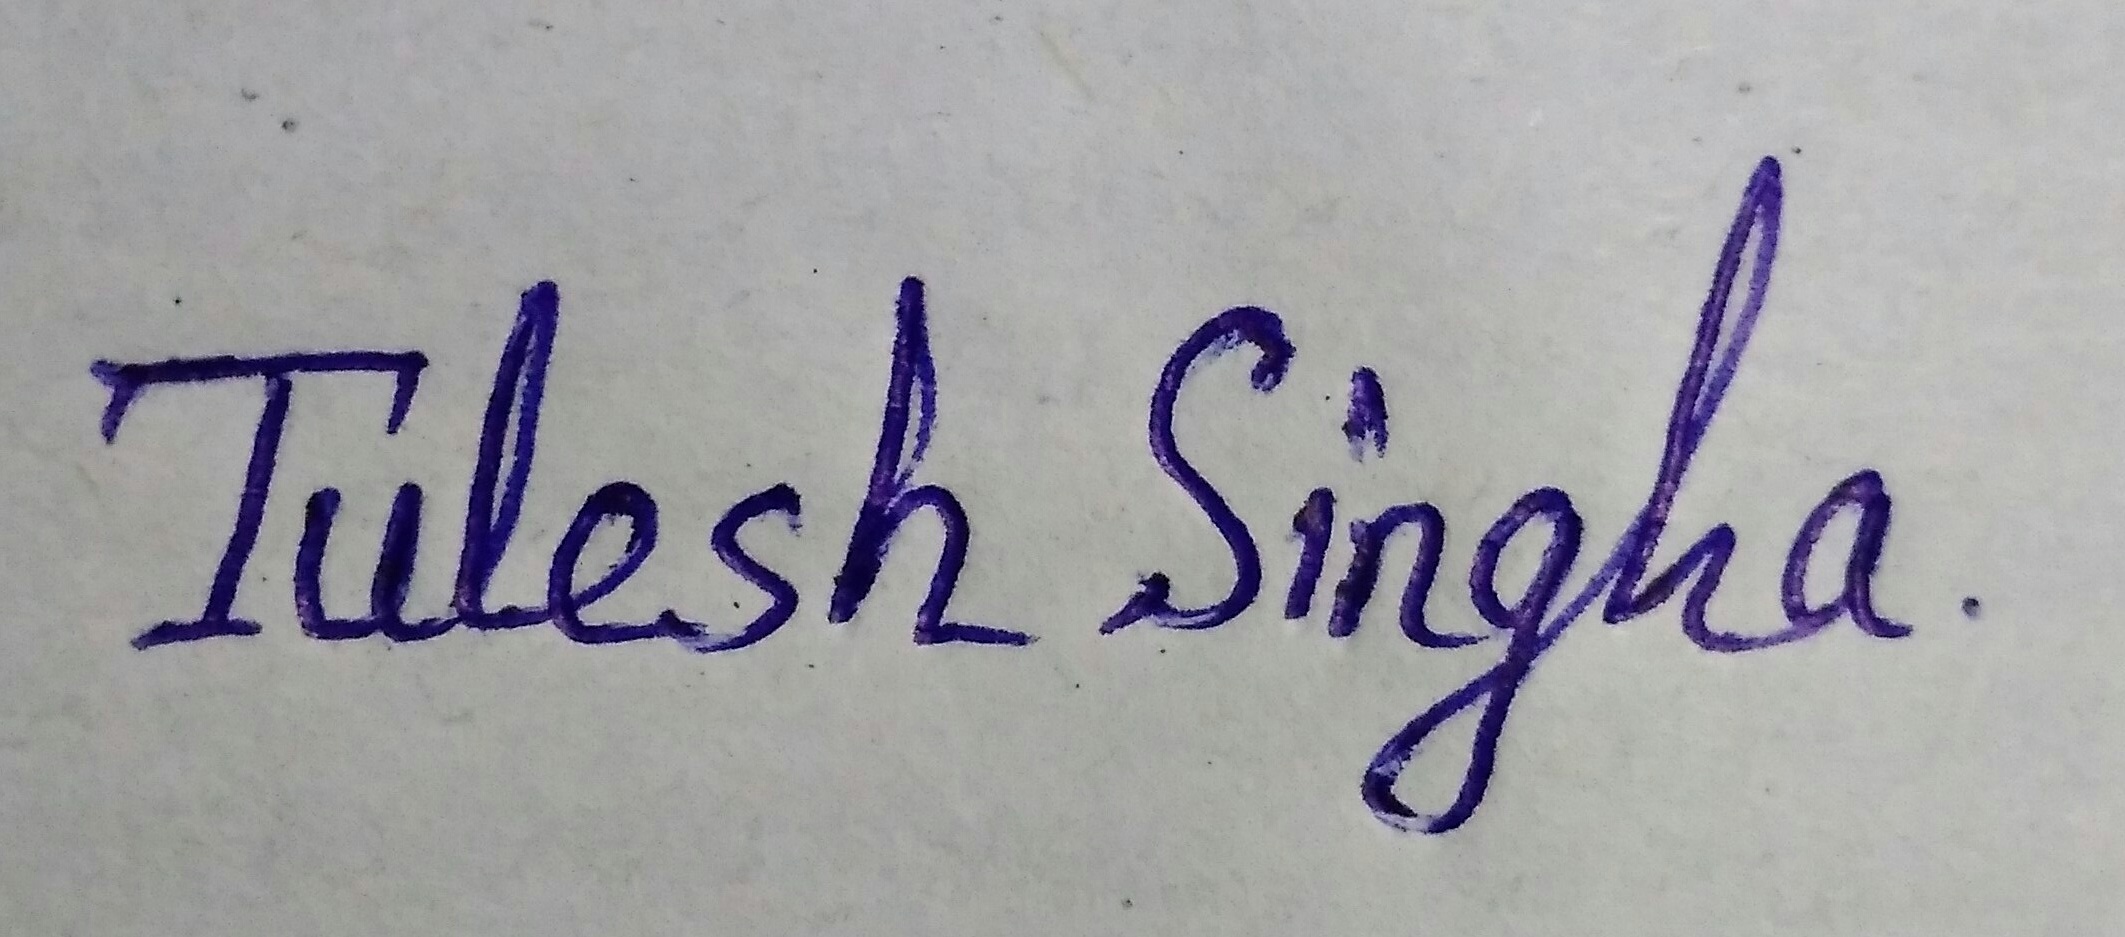 Tulesh Singha.